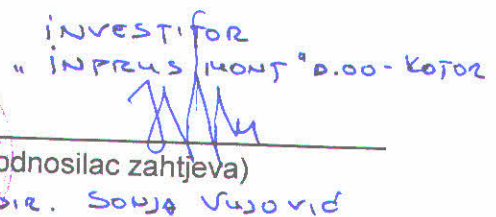 INVESTITOR
" INPRUS MONT " D.OO - KOTOR
odnosilac zahtjeva)
DIR. SONJA VUJOVIĆ